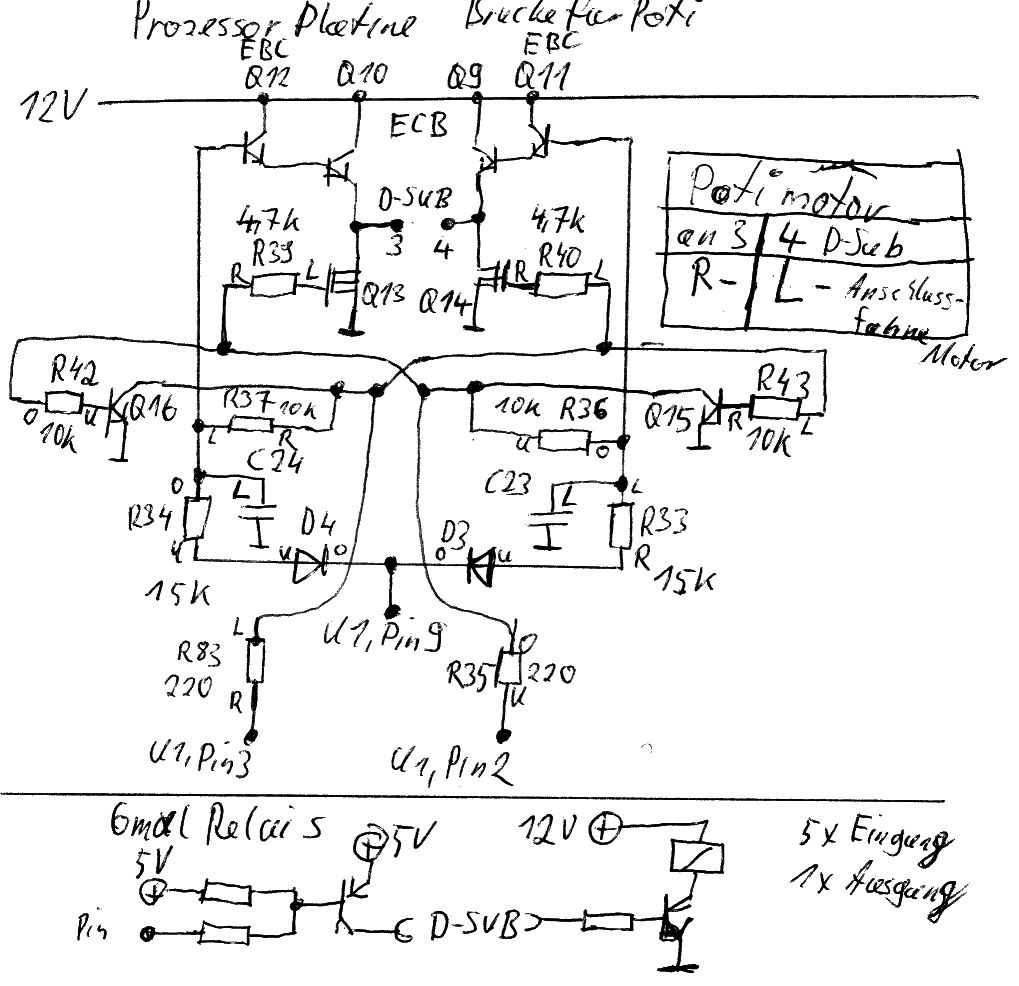 Prozessor Platine Brücke für Poti
EBC EBC
Q12 Q10 Q9 Q11
12V
ECB
Poti motor
an 3 / 4 D-Sub
R - / L - Anschluss-
fahne
Motor
D-SUB
3 4
4,7k 4,7k
R39 R40
R L R L
Q13 Q14
R42 R43
O U Q16 Q15 R L
10k 10k
R37 10k 10k R36
L R U O
C24 C23
O L L L
R34 D4 D3 R33
U U O O U R
15k 15k
U1, Pin9
L O
R83 R35 220
220
R U
U1, Pin3 U1, Pin2
6mal Relais 5V 12V 5x Eingang
5V 1x Ausgang
Pin D-SUB